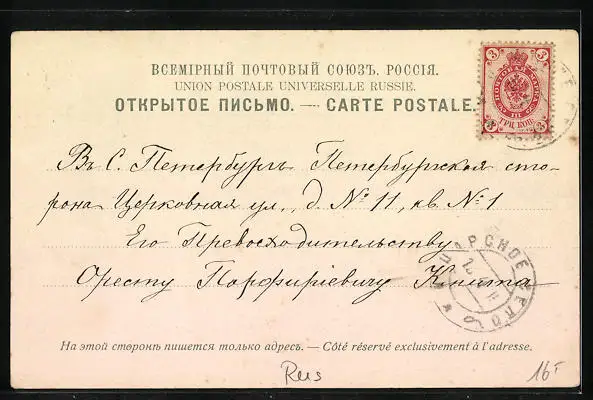 ВСЕМІРНЫЙ ПОЧТОВЫЙ СОЮЗЪ. РОССІЯ.
UNION POSTALE UNIVERSELLE RUSSIE.
ОТКРЫТОЕ ПИСЬМО. — CARTE POSTALE.
3 3
ПОЧТОВАЯ МАРКА
ТРИ КОП.
3 3
Въ С. Петербургъ Петербургская сто-
рона Церковная ул., д. № 11, кв. № 1
Его Превосходительству
Оресту Порфиріевичу
ЦАРСКОЕ СЕЛО
На этой сторонѣ пишется только адресъ. — Côté réservé exclusivement à l'adresse.
Rus
16